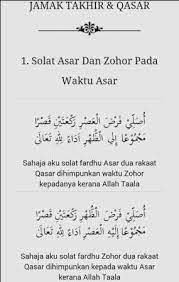 JAMAK TAKHIR & QASAR
1. Solat Asar Dan Zohor Pada
Waktu Asar
أُصَلِّيْ فَرْضَ الْعَصْرِ رَكْعَتَيْنِ قَصْرًا
مَجْمُوْعًا إِلَى الظُّهْرِ أَدَاءً لِلَّهِ تَعَالَى
Sahaja aku solat fardhu Asar dua rakaat
Qasar dihimpunkan waktu Zohor
kepadanya kerana Allah Taala
أُصَلِّيْ فَرْضَ الظُّهْرِ رَكْعَتَيْنِ قَصْرًا
مَجْمُوْعًا إِلَيْهِ الْعَصْرِ أَدَاءً لِلَّهِ تَعَالَى
Sahaja aku solat fardhu Zohor dua rakaat
Qasar dihimpunkan kepada waktu Asar
kerana Allah Taala